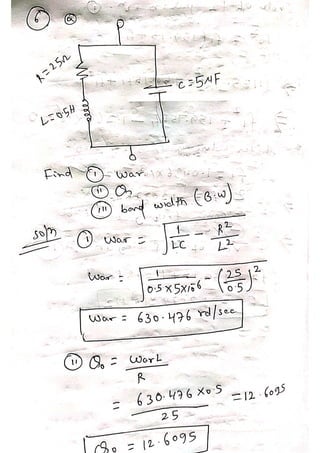 6 a
R=25Ω
C=5µF
L=0.5H
Find i War
ii Q₀
iii band width (B.W)
Soln i War = √(1/LC - R²/L²)
War = √(1/(0.5×5×10⁻⁶) - (25/0.5)²)
War = 630.476 rd/sec
ii Q₀ = WarL/R
= 630.476 × 0.5/25 = 12.6095
Q₀ = 12.6095